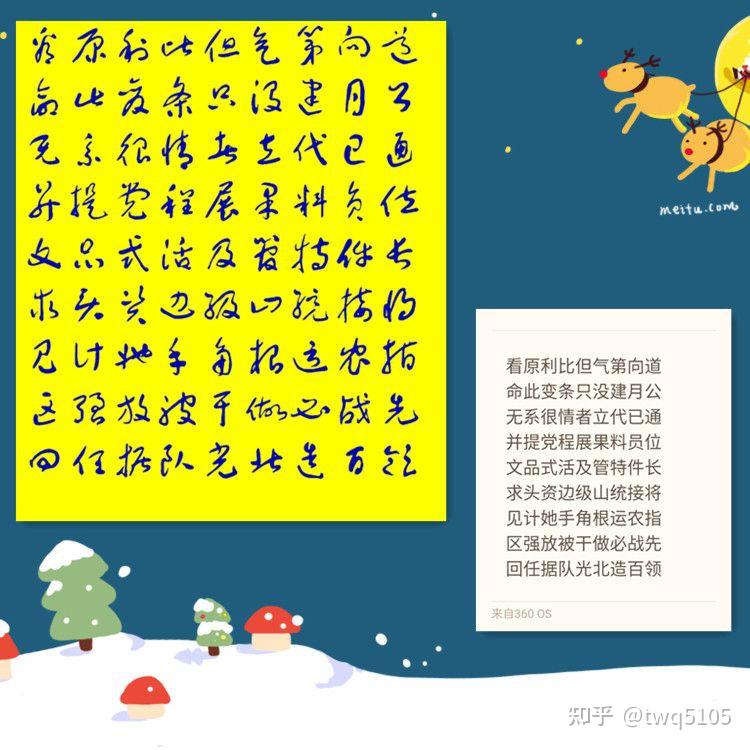 看原利比但气第向道
命此变条只没建月公
无系很情者立代已通
并提党程展果料员位
文品式活及管特件长
求头资边级山统接将
见计她手角根运农指
区强放被干做必战先
回任据队光北造百领
meitu.com
看原利比但气第向道
命此变条只没建月公
无系很情者立代已通
并提党程展果料员位
文品式活及管特件长
求头资边级山统接将
见计她手角根运农指
区强放被干做必战先
回任据队光北造百领
来自360 OS
知乎 @twq5105